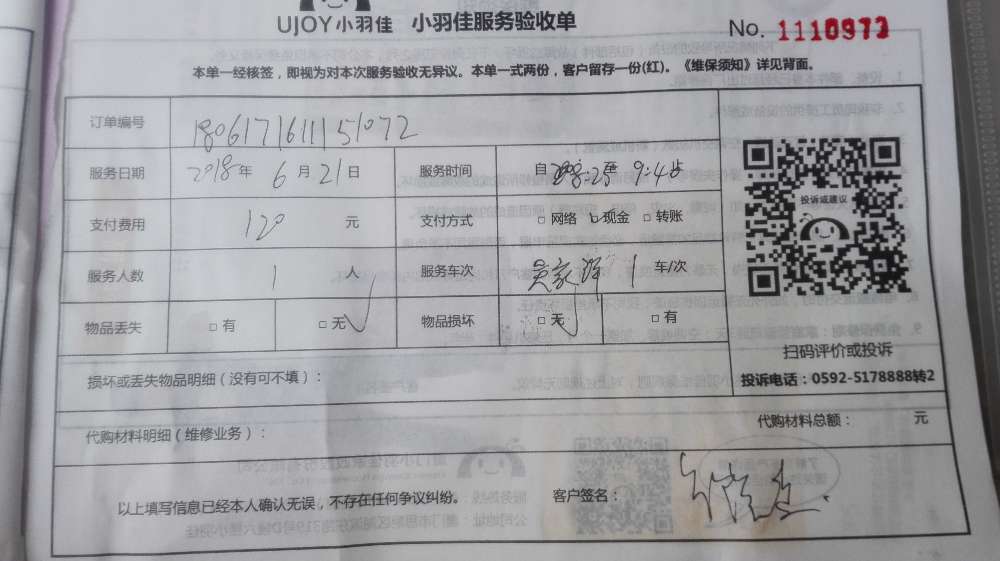 UJOY小羽佳 小羽佳服务验收单
No. 1110973
本单一经核签，即视为对本次服务验收无异议。本单一式两份，客户留存一份(红)。《维保须知》详见背面。
订单编号 1806171611151072
服务日期 2018年 6月21日 服务时间 自 8:25至 9:4 止
支付费用 120 元 支付方式 □ 网络 □ 现金 □ 转账
服务人数 1 人 服务车次 1 车/次
物品丢失 □ 有 □ 无√ 物品损坏 □ 无√ □ 有
投诉或建议
扫码评价或投诉
投诉电话：0592-5178888转2
损坏或丢失物品明细（没有可不填）：
代购材料明细（维修业务）： 代购材料总额： 元
以上填写信息已经本人确认无误，不存在任何争议纠纷。 客户签名：